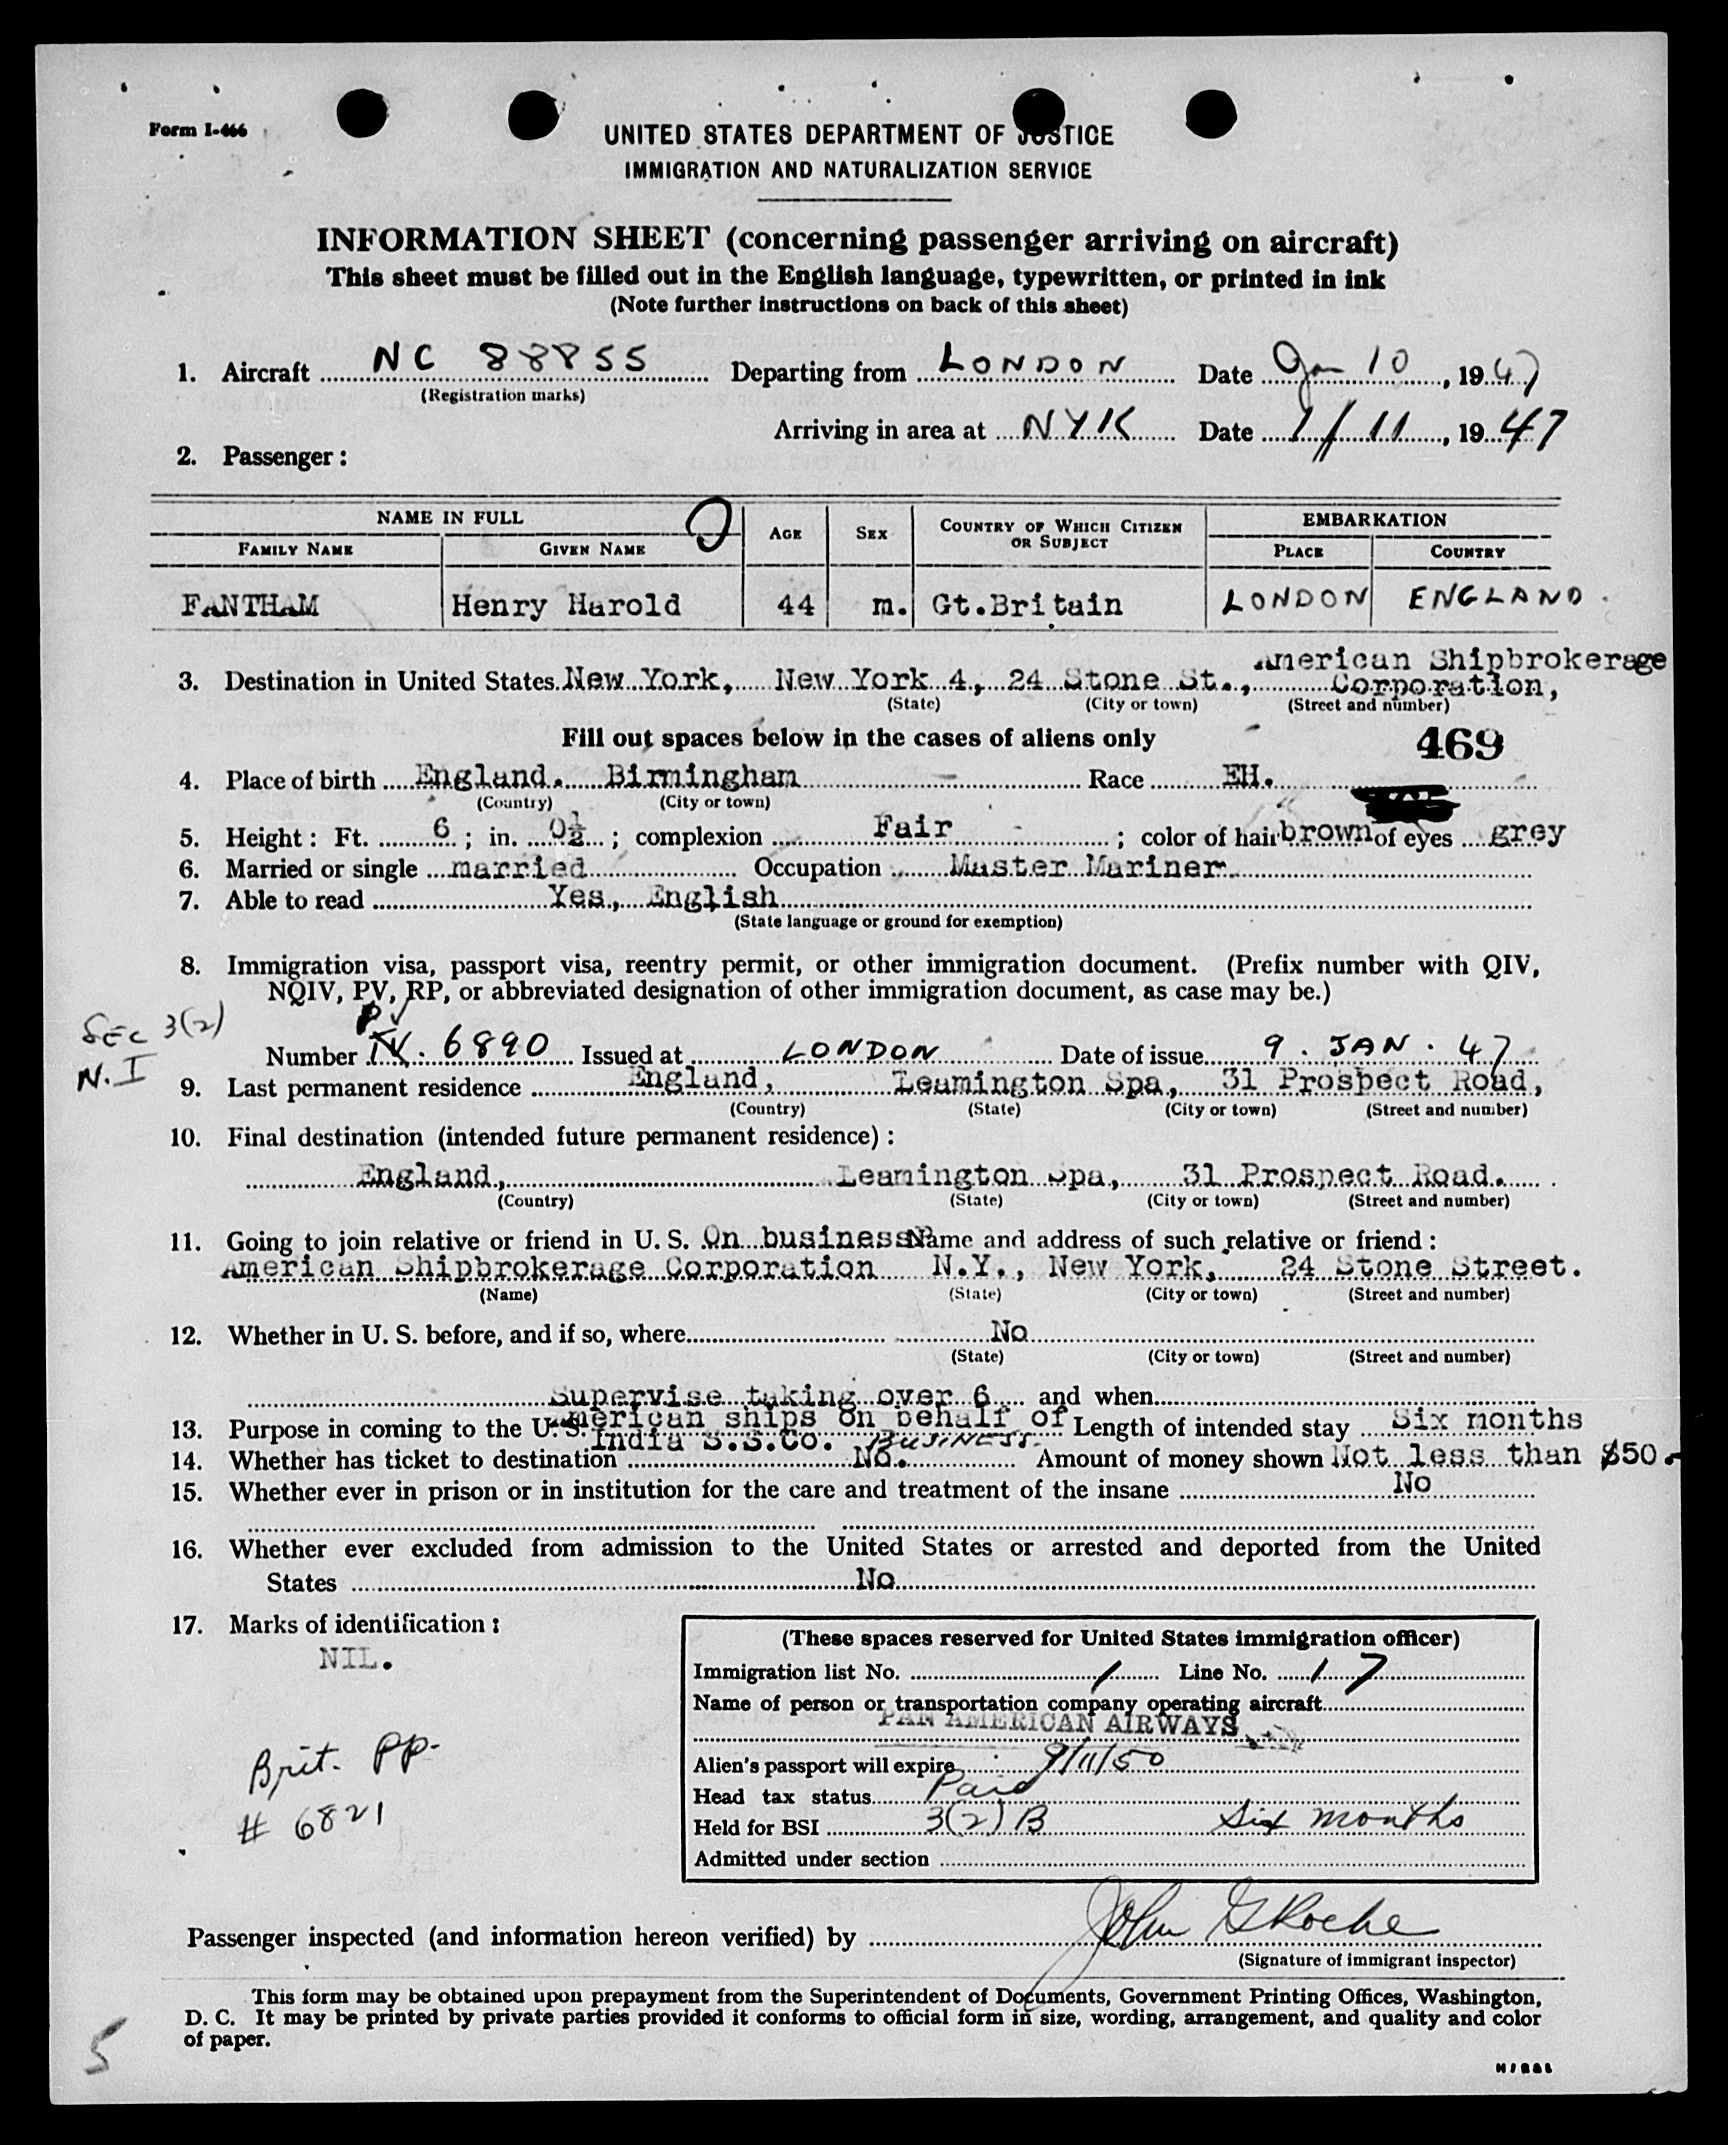 Form I-466
UNITED STATES DEPARTMENT OF JUSTICE
IMMIGRATION AND NATURALIZATION SERVICE
INFORMATION SHEET (concerning passenger arriving on aircraft)
This sheet must be filled out in the English language, typewritten, or printed in ink
(Note further instructions on back of this sheet)
1. Aircraft NC 88855 Departing from LONDON Date Jan 10, 1947
(Registration marks)
Arriving in area at NYK Date 1/11, 1947
2. Passenger:
NAME IN FULL AGE SEX COUNTRY OF WHICH CITIZEN OR SUBJECT EMBARKATION
FAMILY NAME GIVEN NAME PLACE COUNTRY
FANTHAM Henry Harold 44 m. Gt.Britain LONDON ENGLAND.
American Shipbrokerage
3. Destination in United States New York, New York 4, 24 Stone St., Corporation,
(State) (City or town) (Street and number)
Fill out spaces below in the cases of aliens only 469
4. Place of birth England. Birmingham Race EH.
(Country) (City or town)
5. Height: Ft. 6; in. 0½; complexion Fair; color of hair brown of eyes grey
6. Married or single married Occupation Master Mariner.
7. Able to read Yes, English
(State language or ground for exemption)
8. Immigration visa, passport visa, reentry permit, or other immigration document. (Prefix number with QIV,
NQIV, PV, RP, or abbreviated designation of other immigration document, as case may be.)
SEC 3(2)
N.I
Number PV. 6890 Issued at LONDON Date of issue 9. JAN. 47
9. Last permanent residence England, Leamington Spa, 31 Prospect Road,
(Country) (State) (City or town) (Street and number)
10. Final destination (intended future permanent residence):
England, Leamington Spa, 31 Prospect Road.
(Country) (State) (City or town) (Street and number)
11. Going to join relative or friend in U. S. On business Name and address of such relative or friend:
American Shipbrokerage Corporation N.Y., New York, 24 Stone Street.
(Name) (State) (City or town) (Street and number)
12. Whether in U. S. before, and if so, where No
(State) (City or town) (Street and number)
Supervise taking over 6 and when
13. Purpose in coming to the U. S. American ships on behalf of Length of intended stay Six months
India S.S.Co. BUSINESS
14. Whether has ticket to destination No. Amount of money shown Not less than $50.-
15. Whether ever in prison or in institution for the care and treatment of the insane No
16. Whether ever excluded from admission to the United States or arrested and deported from the United
States No
17. Marks of identification:
NIL.
Brit. PP.
# 6821
(These spaces reserved for United States immigration officer)
Immigration list No. 1 Line No. 17
Name of person or transportation company operating aircraft
PAN AMERICAN AIRWAYS
Alien's passport will expire 9/11/50
Head tax status Paid
Held for BSI 3(2) B Six months
Admitted under section
Passenger inspected (and information hereon verified) by John G Roche
(Signature of immigrant inspector)
This form may be obtained upon prepayment from the Superintendent of Documents, Government Printing Offices, Washington,
D. C. It may be printed by private parties provided it conforms to official form in size, wording, arrangement, and quality and color
of paper.
5